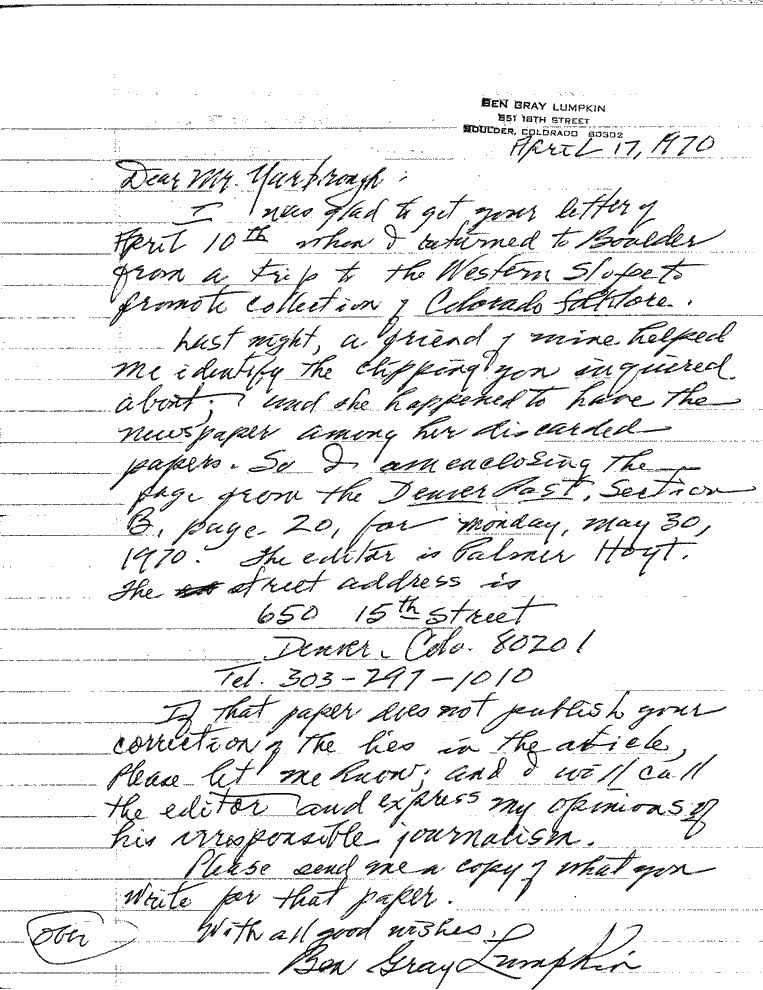 BEN GRAY LUMPKIN
851 18TH STREET
BOULDER, COLORADO 80302
April 17, 1970
Dear Mr. Yarbrough:
I was glad to get your letter of
April 10th when I returned to Boulder
from a trip to the Western Slope to
promote collection of Colorado folklore.
Last night, a friend of mine helped
me identify the clipping you inquired
about; and she happened to have the
newspaper among her discarded
papers. So I am enclosing the
page from the Denver Post, Section
B, page 20, for Monday, May 30,
1970. The editor is Palmer Hoyt.
The street address is
650 15th Street
Denver, Colo. 80201
Tel. 303-297-1010
If that paper does not publish your
correction of the lies in the article,
Please let me know; and I will call
the editor and express my opinions of
his irresponsible journalism.
Please send me a copy of what you
write for that paper.
With all good wishes,
Ben Gray Lumpkin
over